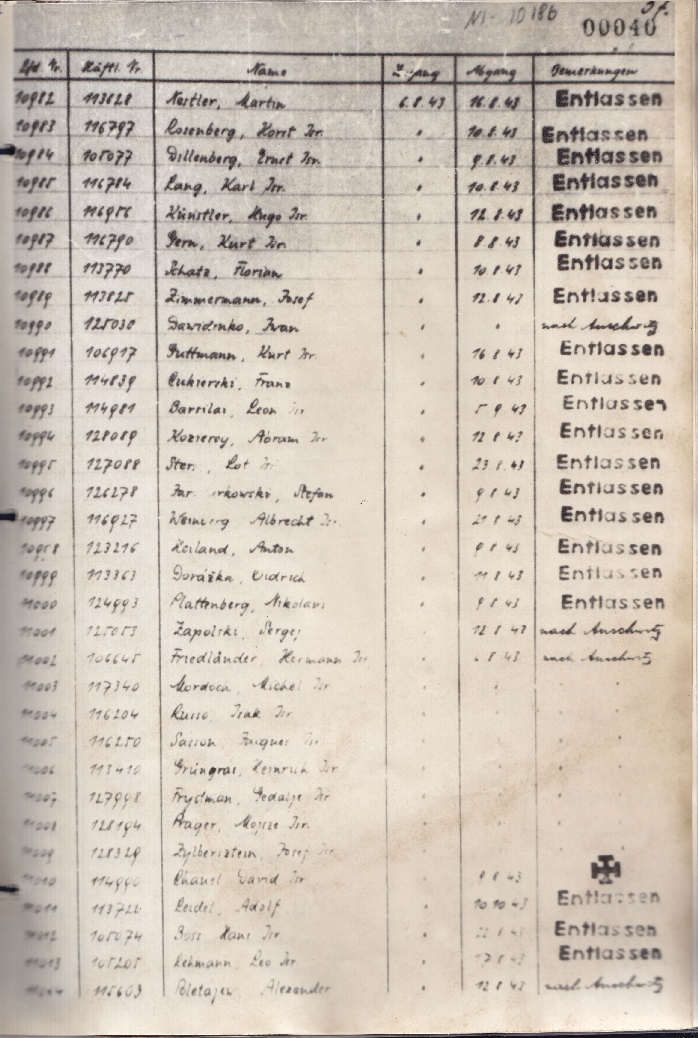 NI-10186
00040
Lfd. Nr. Häftl. Nr. Name Zugang Abgang Bemerkungen
10982 113828 Nestler, Martin 6.8.43 16.8.43 Entlassen
10983 116797 Rosenberg, Horst Isr. " 10.8.43 Entlassen
10984 105077 Dillenberg, Ernst Isr. " 9.8.43 Entlassen
10985 116784 Lang, Karl Isr. " 10.8.43 Entlassen
10986 Künstler, Hugo Isr. " 12.8.43 Entlassen
10987 116790 Gern, Kurt Isr. " 8 8 43 Entlassen
10988 113770 Schatz, Florian " 10 8 43 Entlassen
10989 113825 Zimmermann, Josef " 12.8.43 Entlassen
10990 125030 Dawidenko, Iwan " " nach Auschwitz
10991 106917 Guttmann, Kurt Isr. " 16 8 43 Entlassen
10992 114839 Cukierski, Franz " 10 8 43 Entlassen
10993 114981 Barsilai, Leon Isr " 5 9 43 Entlassen
10994 128089 Abram Isr " 12 8 43 Entlassen
10995 127088 Lot Isr " 23 8 43 Entlassen
10996 126278 Stefan " 9 8 43 Entlassen
10997 116927 Weinberg Albrecht Isr. " 21 8 43 Entlassen
10998 123216 Heiland, Anton " 9 8 43 Entlassen
10999 113363 Dorážka, Oldrich " 11 8 43 Entlassen
11000 124993 Plattenberg, Nikolaus " 9 8 43 Entlassen
11001 125053 Zapolski, Sergej 12 8 43 nach Auschwitz
11002 106645 Friedländer, Hermann Isr " 6 8 43 nach Auschwitz
11003 117340 Mordoch, Michel Isr " " "
11004 116204 Russo, Isak Isr " " "
11005 116250 Sasson, Jacques Isr " " "
11006 113410 Grüngras, Heinrich Isr " " "
11007 127998 Frydman, Gedalje Isr " " "
11008 128194 Prager, Mojsze Isr. " " "
11009 128329 Zylbersztein, Josef Isr " "
11010 114990 David Isr " 9 8 43
11011 Adolf " 10 10 43 Entlassen
11012 105074 Boss Hans Isr " 22 8 43 Entlassen
11013 105205 Lehmann, Leo Isr " 17 8 43 Entlassen
11014 115603 Poletajew, Alexander " 12 8 43 nach Auschwitz